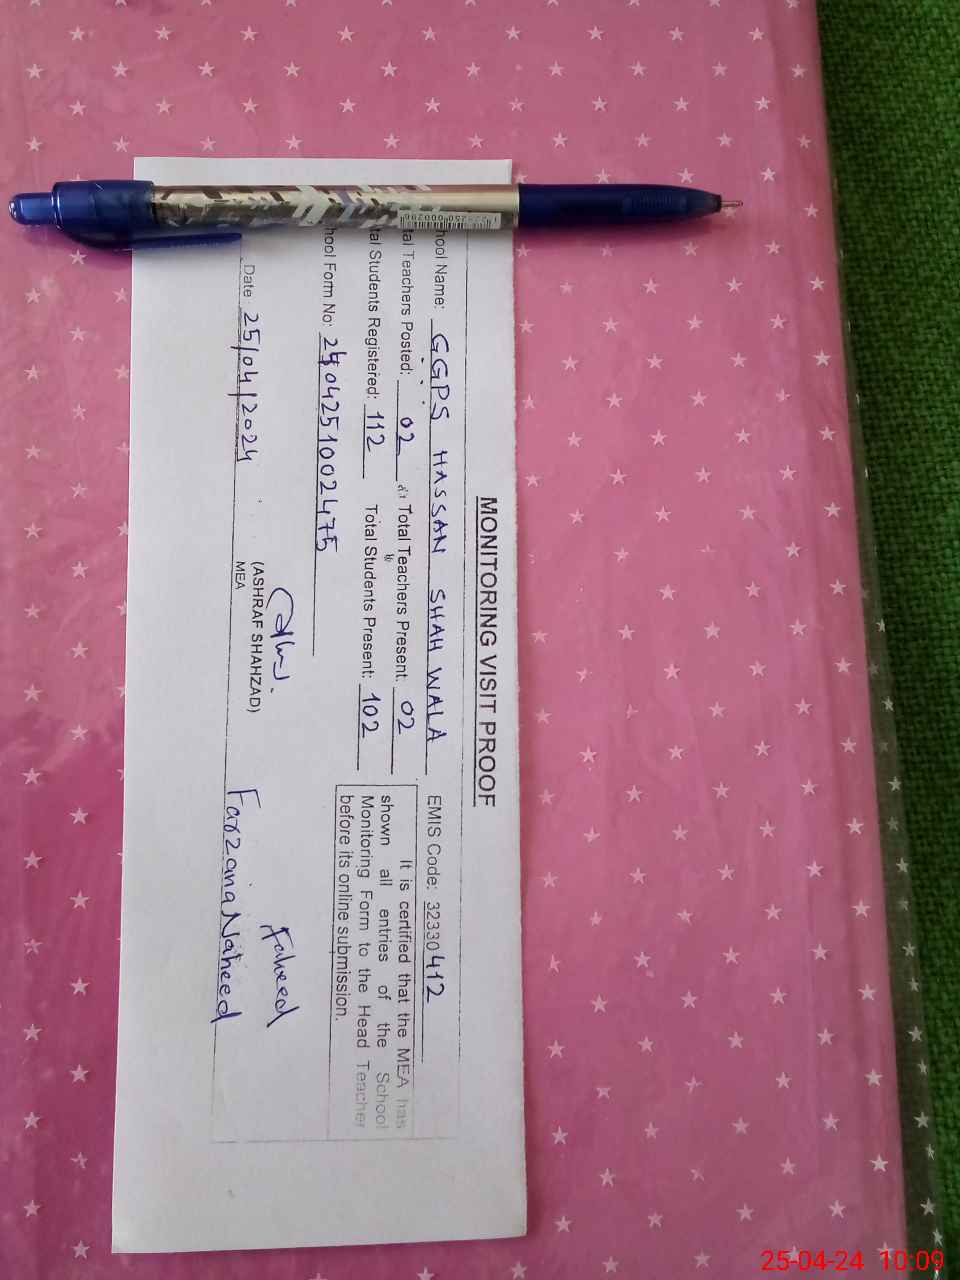 MONITORING VISIT PROOF
hool Name: GGPS HASSAN SHAH WALA EMIS Code: 32330412
tal Teachers Posted: 02 Total Teachers Present: 02
tal Students Registered: 112 Total Students Present: 102
hool Form No: 2404251002475
It is certified that the MEA has
shown all entries of the School
Monitoring Form to the Head Teacher
before its online submission.
Date: 25/04/2024
(ASHRAF SHAHZAD)
MEA
Naheed
Farzana Naheed
25-04-24 10:09